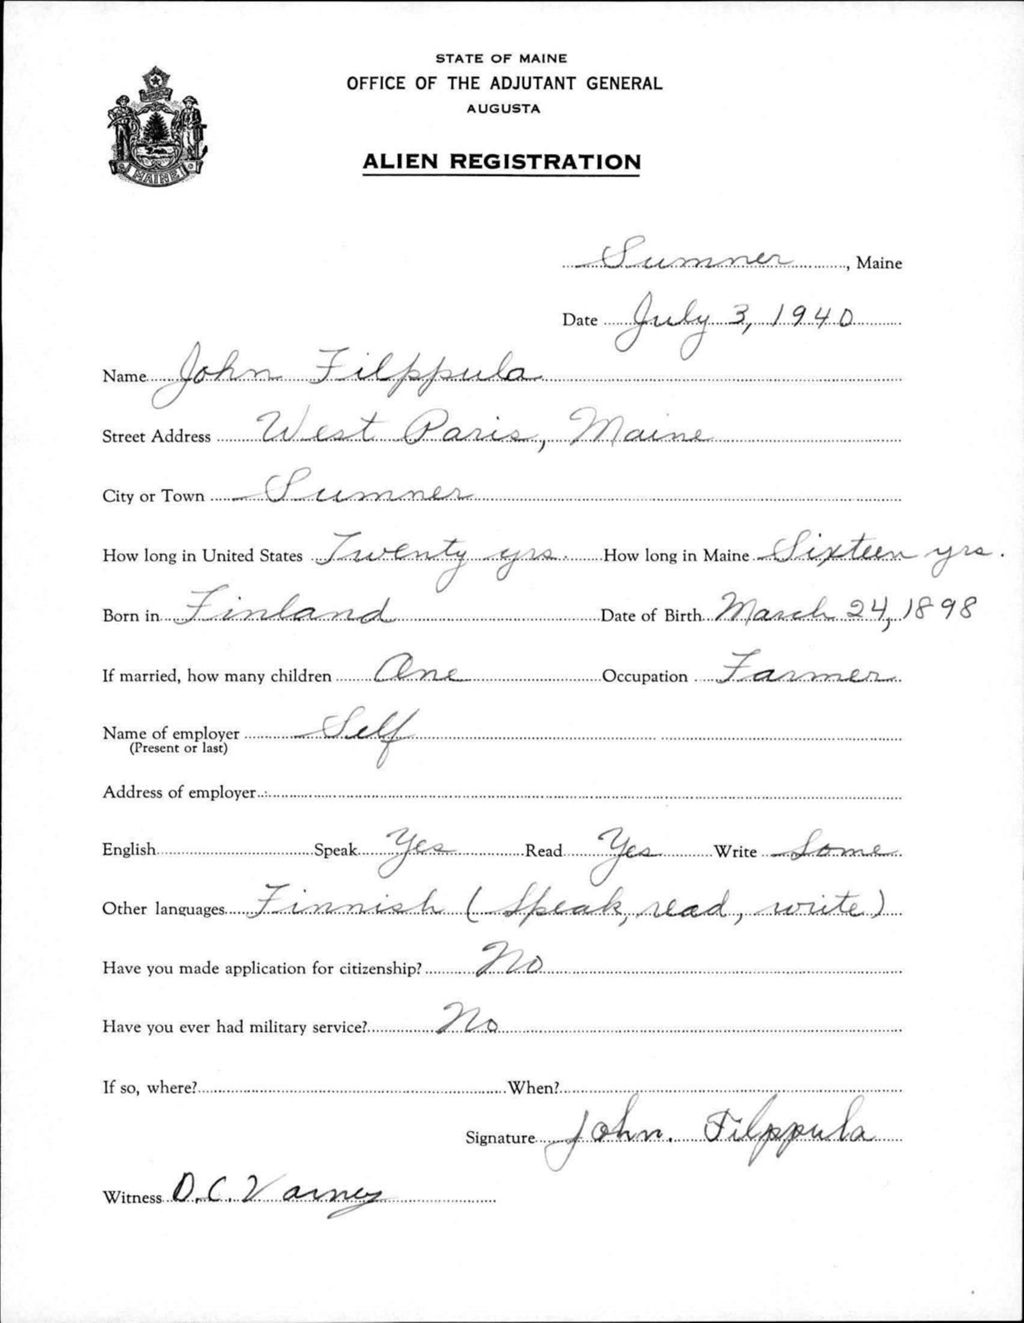 STATE OF MAINE
OFFICE OF THE ADJUTANT GENERAL
AUGUSTA
ALIEN REGISTRATION
MAINE
Sumner, Maine
Date July 3, 1940
Name John Filppula
Street Address West Paris, Maine
City or Town Sumner
How long in United States Twenty yrs. How long in Maine Sixteen yrs.
Born in Finland Date of Birth March 24, 1898
If married, how many children One Occupation Farmer
Name of employer Self
(Present or last)
Address of employer
English Speak Yes Read Yes Write Some
Other languages Finnish (Speak, read, write)
Have you made application for citizenship? No
Have you ever had military service? No
If so, where? When?
Signature John. Filppula
Witness D.C. Varney